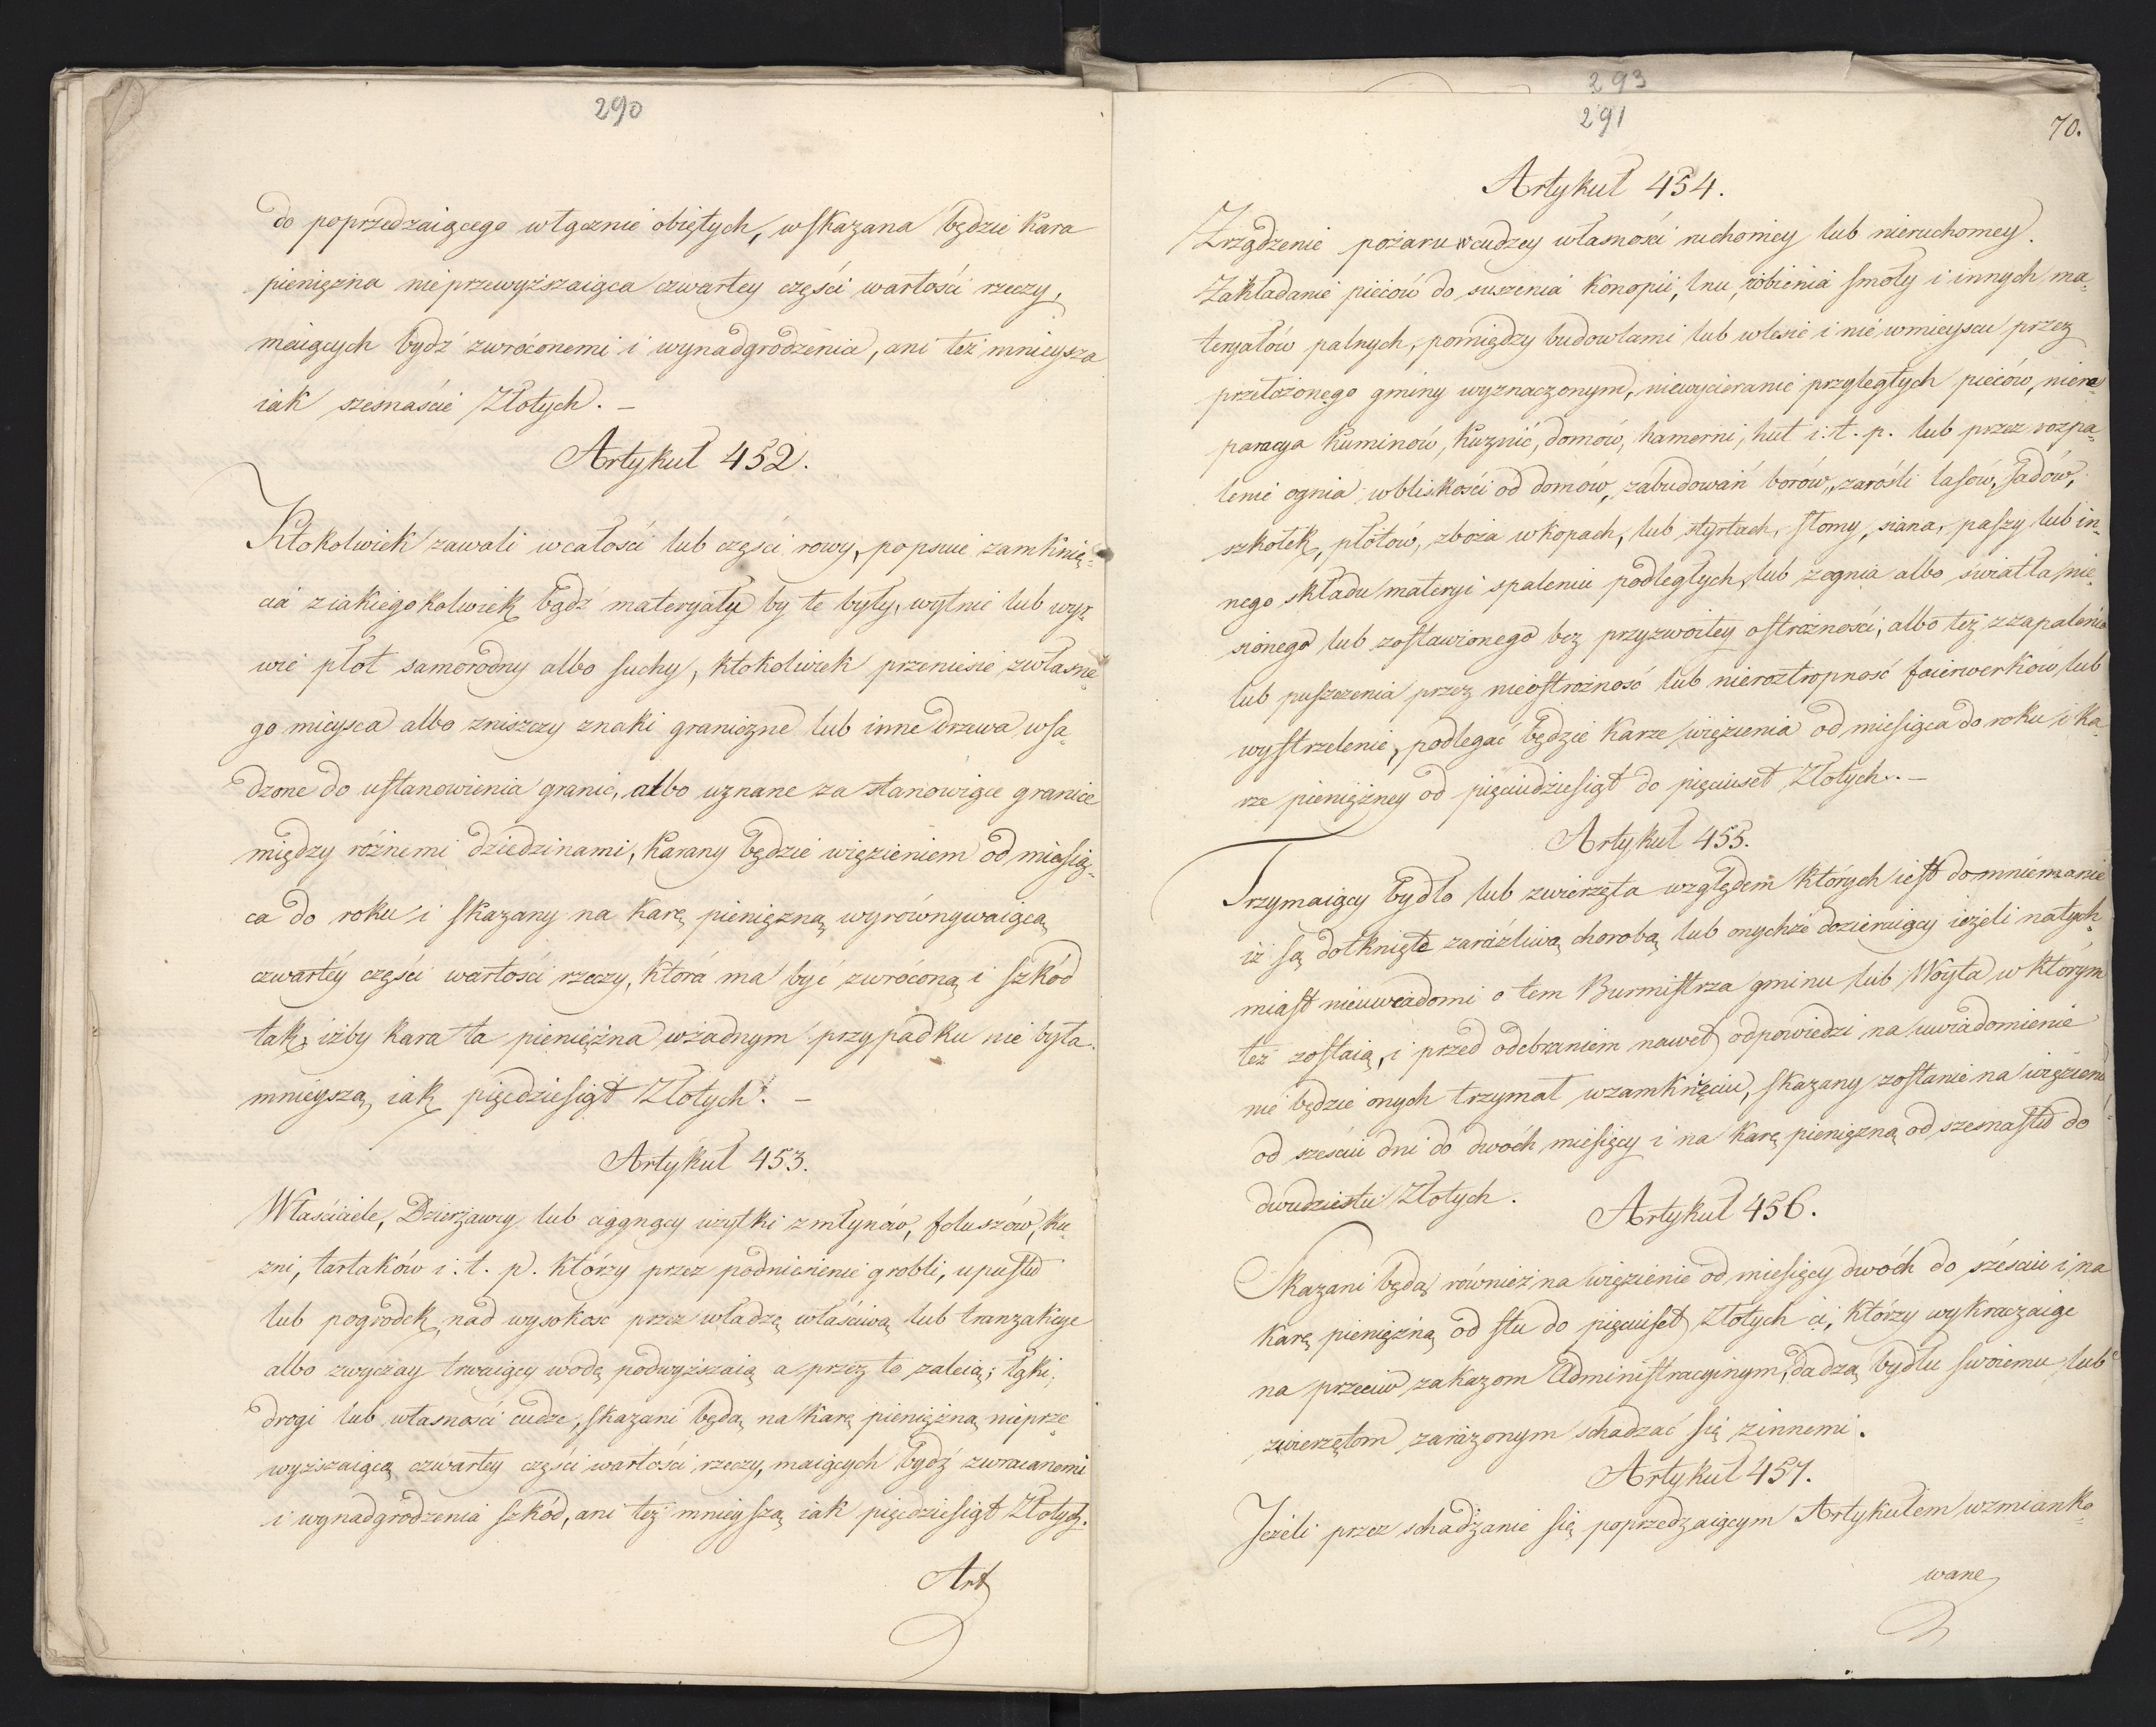 290
do poprzedzaiącego włącznie obiętych, wskazana będzie kara
pieniężna nieprzewyższaiąca czwartey części wartości rzeczy,
maiących bydź zwróconemi i wynadgrodzenia, ani też mnieysza
iak szesnaście Złotych. –
Artykuł 452.
Ktokolwiek zawali wcałości lub części rowy, popsuie zamknię-
cia ziakiegokolwiek bądź materyału by te były, wytnie lub wyr-
wie płot samorodny albo suchy, ktokolwiek przeniesie zwłasne-
go mieysca albo zniszczy znaki graniczne lub inne drzewa wsa-
dzone do ustanowienia granic, albo uznane za stanowiące granice
między różnemi dziedzinami, karany będzie więzieniem od miesią-
ca do roku i skazany na karę pieniężną wyrównywaiącą
czwartéy części wartości rzeczy, która ma być zwróconą i szkód
tak, iżby kara ta pieniężna wżadnym przypadku nie była
mnieyszą iak pięćdziesiąt Złotych. –
Artykuł 453.
Właściciele, Dzierżawcy lub ciągnący użytki zmłynów, foluszów, ku-
zni, tartaków i. t. p. którzy przez podniesienie grobli, upustu
lub pogrodek, nad wysokość przez władzę właściwą lub tranzakcye
albo zwyczay trwaiący wodę podwyższaią a przez to zaleią; łąki,
drogi lub własności cudze, skazani będą na karę pieniężną nieprze-
wyższaiącą czwartey części wartości rzeczy, maiących bydź zwracanemi
i wynadgrodzenia szkód, ani też mnieyszą iak pięćdziesiąt Złotych.
Art
293
291
70.
Artykuł 454.
Zrządzenie pożaru w cudzey własności ruchomey lub nieruchomey.
Zakładanie pieców do suszenia konopii, lnu, robienia smoły i innych ma-
teryałów palnych, pomiędzy budowlami lub wlesie i nie wmieyscu przez
przełożonego gminy wyznaczonym, niewycieranie przyległych pieców, niere-
paracya kuminów, kuznic, domów, hamerni, hut i. t. p. lub przez rozpa-
lenie ognia wbliskości od domów, zabudowań borów, zarośli lasów, sadów,
szkołek, płotów, zboża wkopach, lub styrtach, słomy, siana, paszy lub in-
nego składu materyi spaleniu podległych, lub zognia albo światła nie-
sionego lub zostawionego bez przyzwoitey ostrożności, albo też zzapalenia
lub puszczenia przez nieostrożność lub nieroztropność faierwerków, lub
wystrzelenie, podlegać będzie karze więzienia od miesiąca do roku i ka-
rze pieniężney od pięciudziesiąt do pięciuset Złotych. –
Artykuł 455.
Trzymaiący bydło lub zwierzęta względem których iest domniemanie
iż są dotknięte zaraźliwą chorobą lub onychże dozieraiący ieżeli natych-
miast nieuwiadomi o tem Burmistrza gminu lub Woyta w którym
też zostaią, i przed odebraniem nawet odpowiedzi na uwiadomienie
nie będzie onych trzymał wzamknięciu, skazany zostanie na więzienie
od sześciu dni do dwóch miesięcy i na karę pieniężną od szesnastu do
dwudziestu Złotych.
Artykuł 456.
Skazani będą również na więzienie od miesięcy dwóch do sześciu i na
karę pieniężną od stu do pięciuset Złotych ci, którzy wykraczaiąc
na przeciw zakazom Administracyinym, dadzą bydłu swoiemu lub
zwierzętom zarażonym schadzać się zinnemi.
Artykuł 457.
Jeżeli przez schadzanie się poprzedzaiącym Artykułem wzmianko-
wane